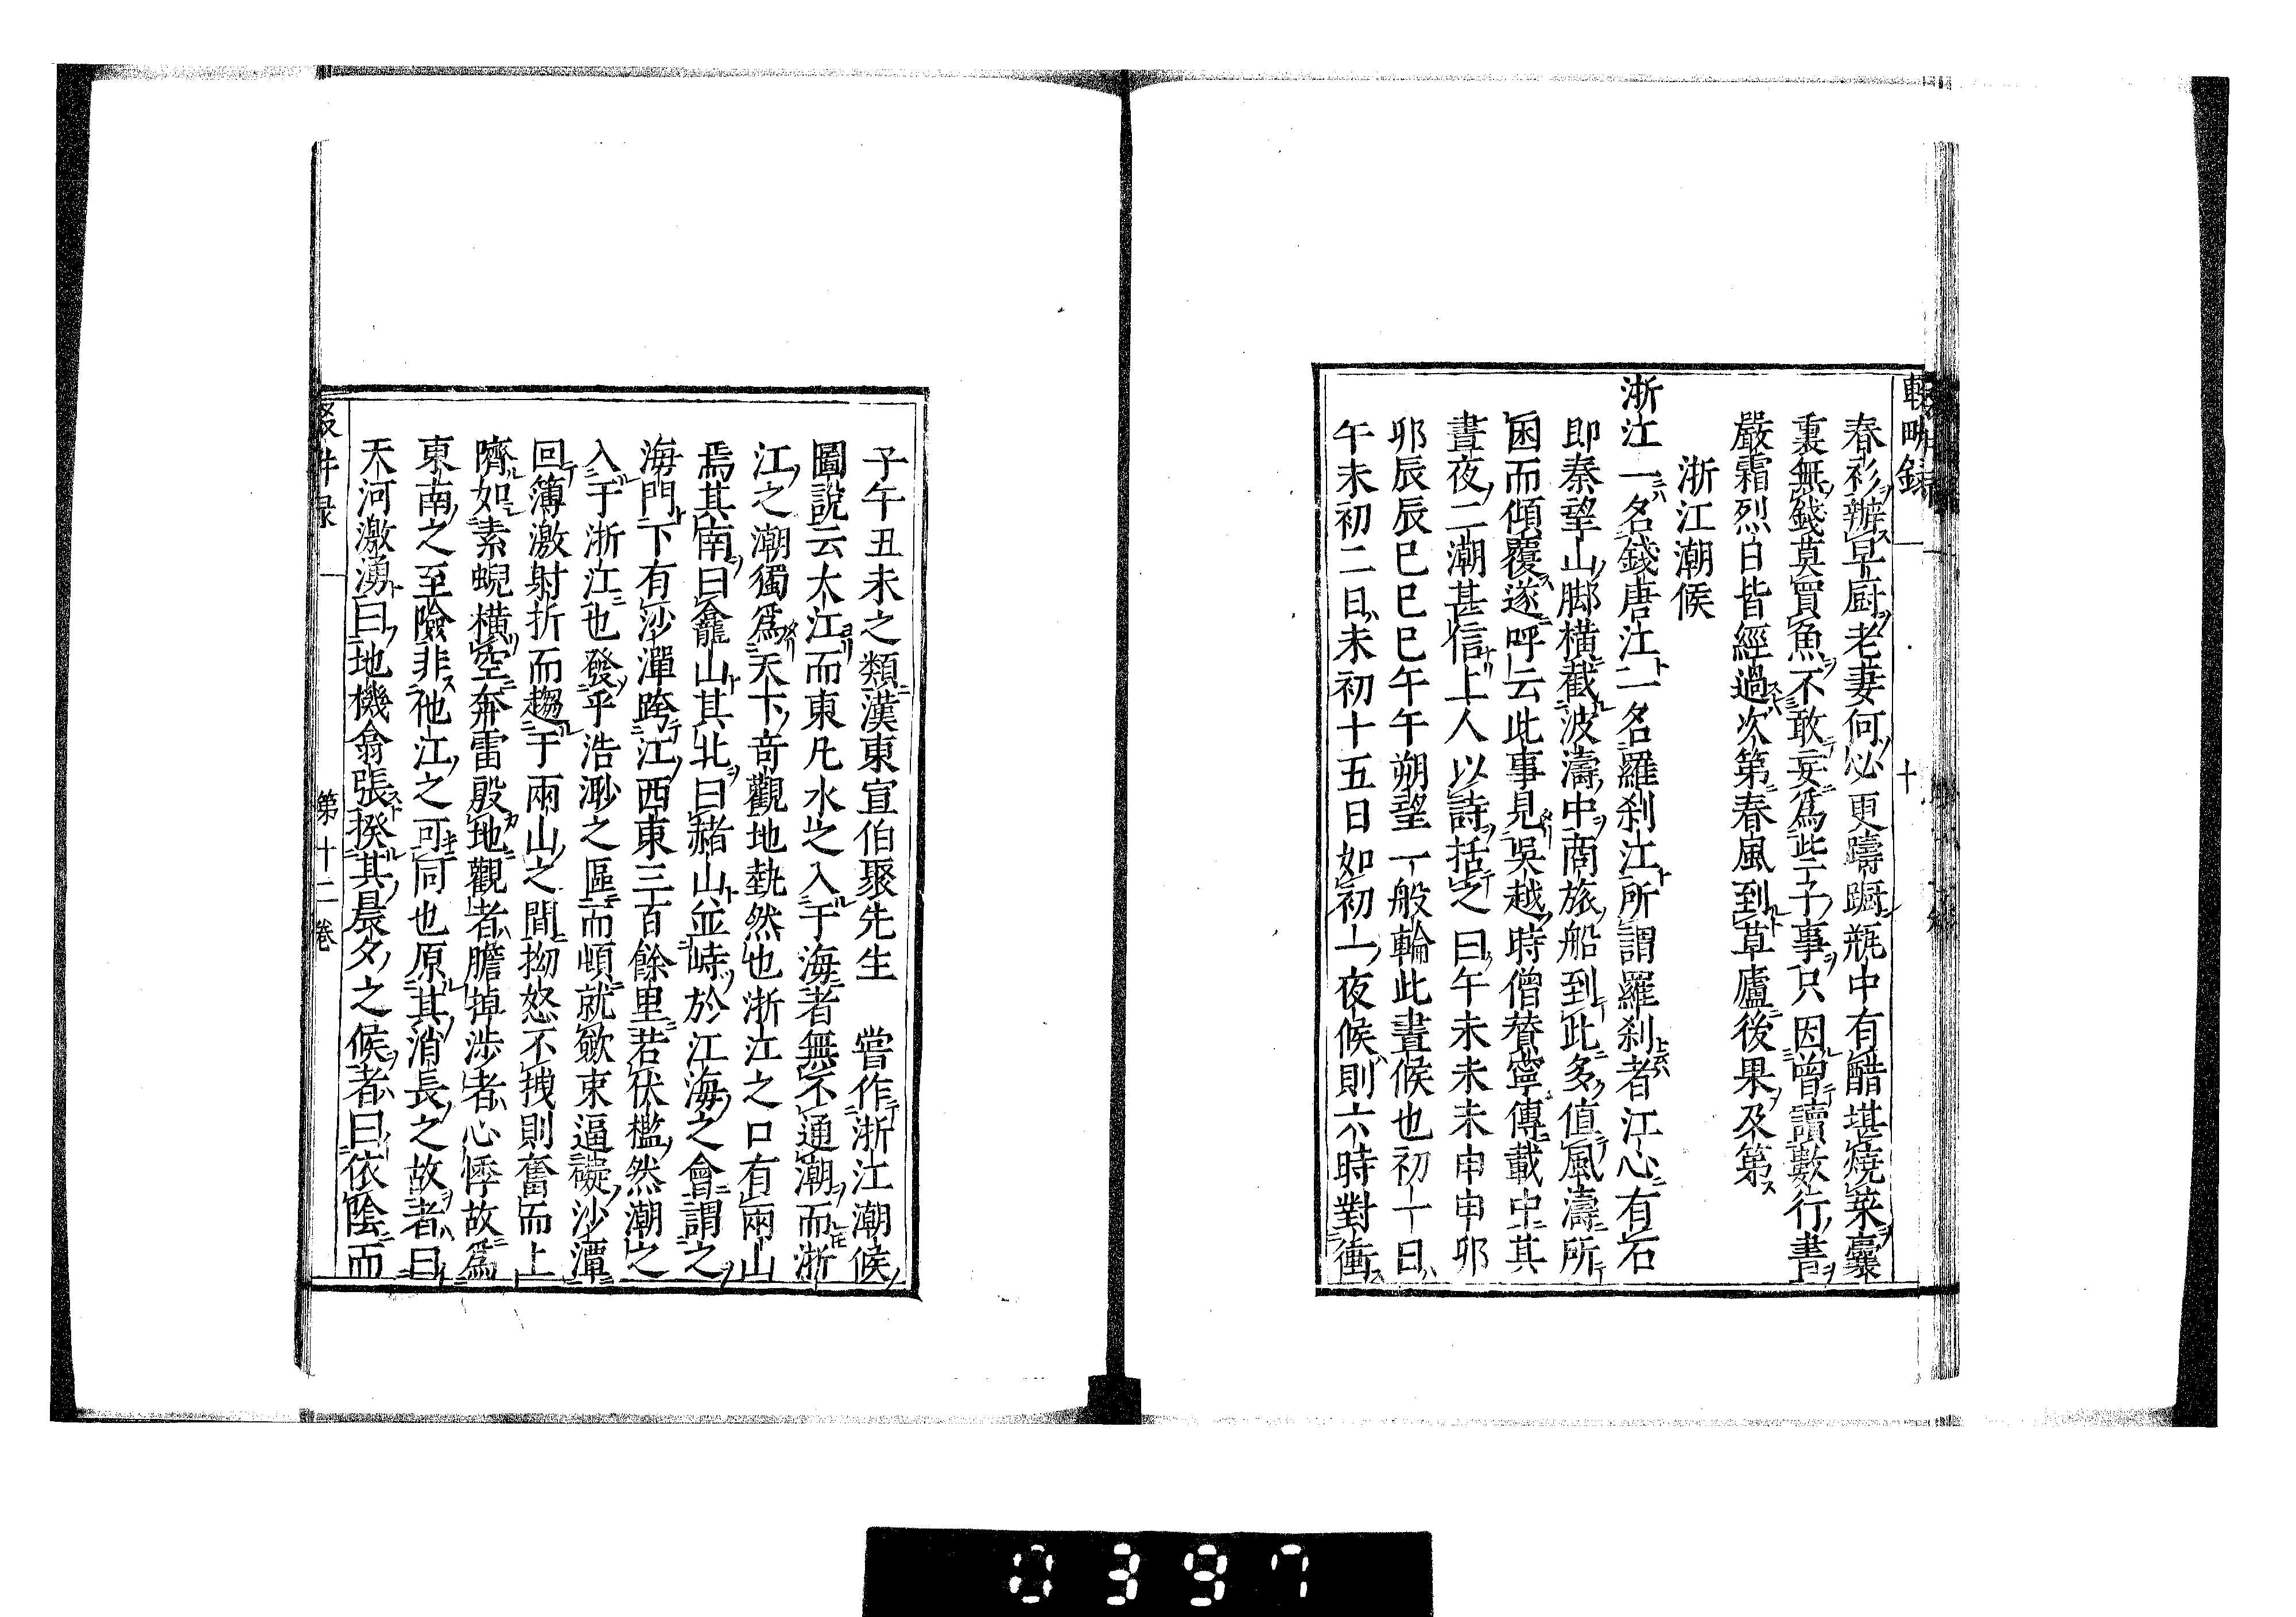 春衫辦早厨老妻何必更躊蹰瓶中有醋堪燒菜囊
裏無錢莫買魚不敢妄爲些子事只因曾讀數行書
嚴霜烈日皆經過次第春風到草廬後果及第
浙江潮候
浙江一名錢唐江一名羅刹江所謂羅刹者江心有石
即秦望山脚橫截波濤中商旅船到此多值風濤所
困而傾覆遂呼云此事見吳越時僧賛寧傳載中其
晝夜二潮甚信上人以詩括之曰午未未未申申卯
卯辰辰巳巳巳午午朔望一般輪此晝候也初一日
午未初二日未初十五日如初一夜候則六時對衝
子午丑未之類漢東宣伯聚先生 嘗作浙江潮候
圖說云大江而東凡水之入于海者無不通潮而浙
江之潮獨爲天下竒觀地埶然也浙江之口有兩山
焉其南曰龕山其北曰赭山並峙於江海之會謂之
海門下有沙潬跨江西東三百餘里若伏檻然潮之
入于浙江也發乎浩渺之區而頓就歛束逼礙沙潭
回簿激射折而趨于兩山之間拗怒不拽則奮而上
隮如素蜺橫空奔雷殷地觀者膽掉涉者心悸故爲
東南之至險非他江之可同也原其消長之故者曰
天河激湧曰地機翕張揆其晨夕之候者曰依陰而
第十二卷
0397